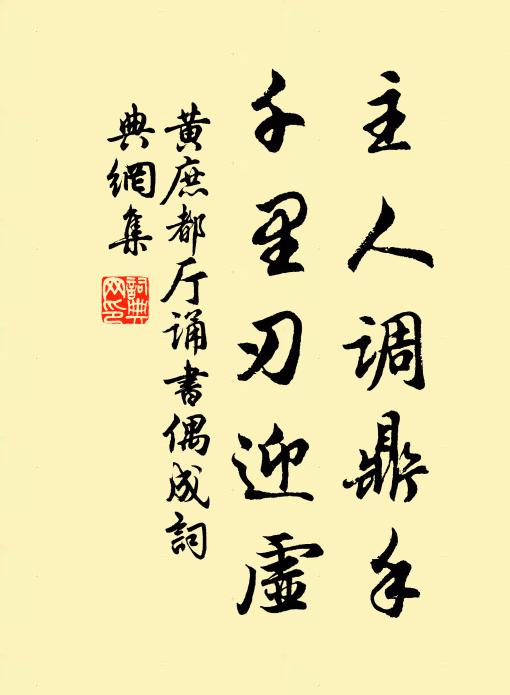 主人调鼎手
千里刃迎虚
黄庶都厅诵書偶成詞
典網集
詞典
网印